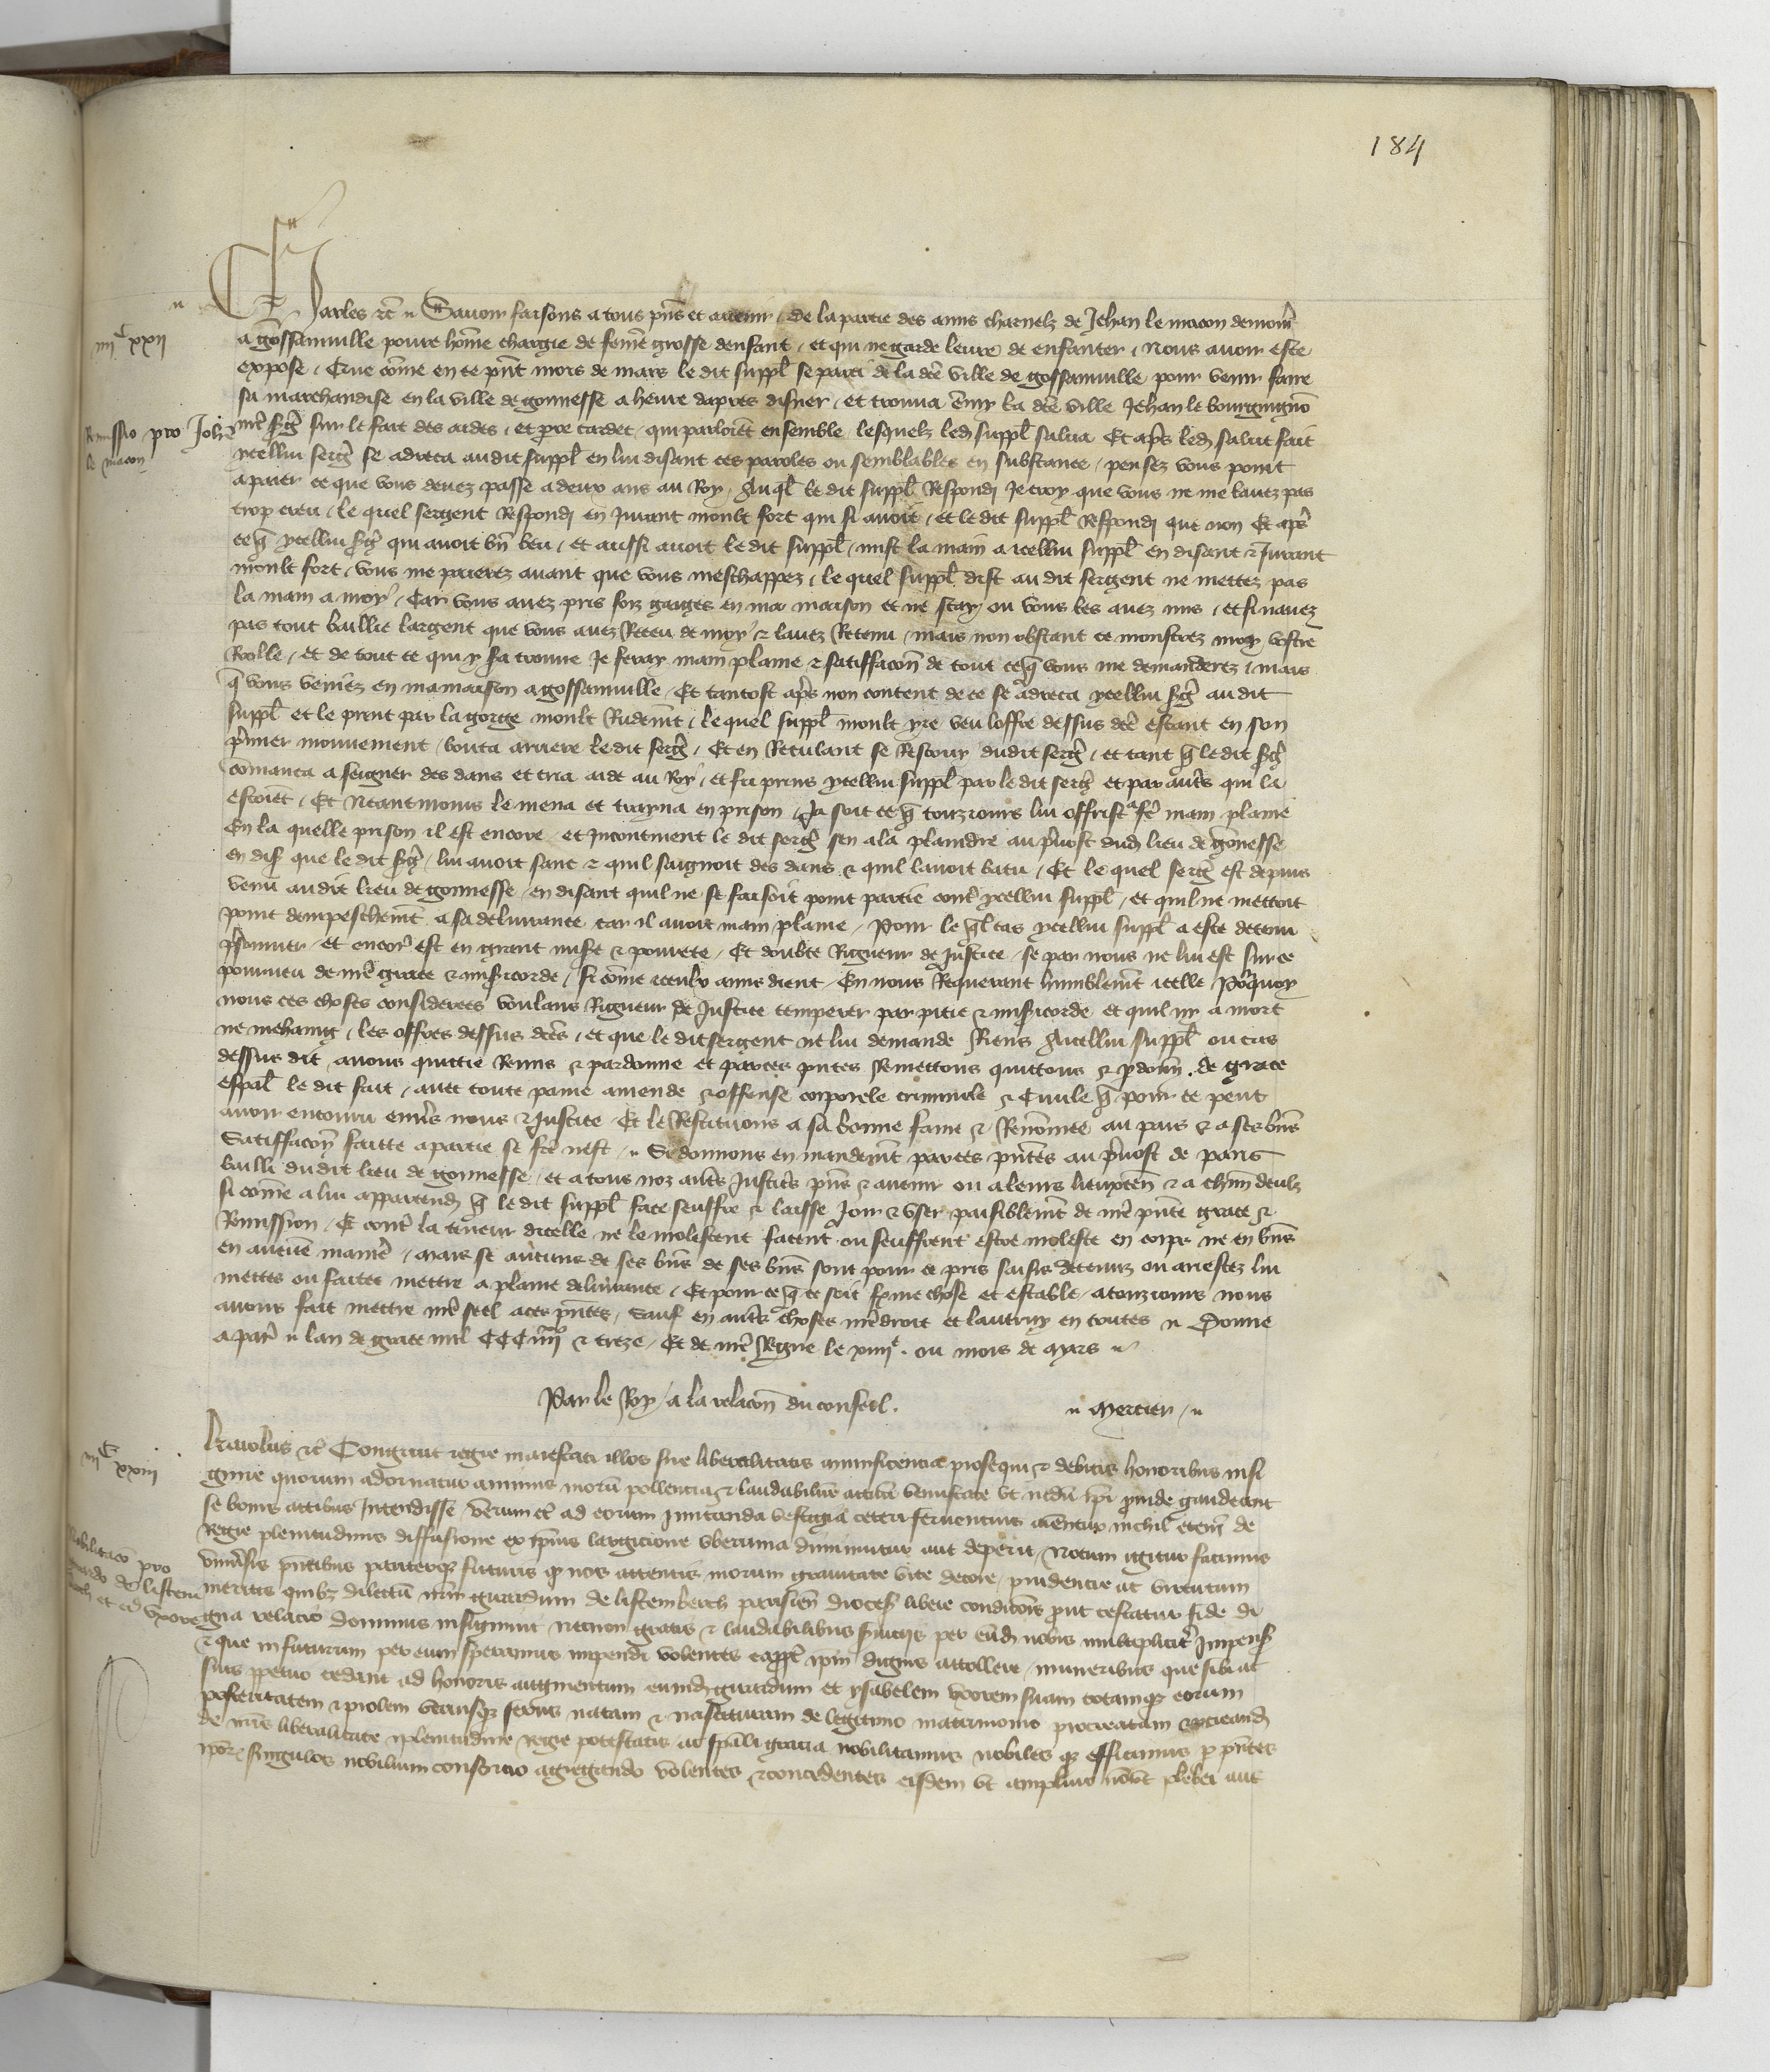 184
Charles etc Savoir faisons a tous pns et avenir de la partie des amis charnelz de Jehan le macon demour
a gossainville povre home chargie de feme grosse denfant et qui ne garde leure de enfanter Nous avoir este
expose Que come en ce pnt mois de mars le dit suppl se parti de la dce ville de gossainville pour venir faire
sa marchandise en la ville de gonnesse a heure dapres disner et trouva enmy la dce ville Jehan le bourguignon
nre serg sur le fait des aides et pre tardet qui parloiet ensemble lesquelz led suppl salua Et aps led salut fait
ycellui serg se adreca au dit suppl en lui disant ces paroles ou semblables en substance pensez vous point
a paier ce que vous devez passe a deux ans au Roy Auql le dit suppl Respondi Je croy que vous ne me lavez pas
trop creu le quel sergent Respondi en Jurant moult fort qui si avoit et le dit suppl Respondi que non Et aps
ce q ycellui serg qui avoit bn beu et aussi avoit le dit suppl mist la main a icellui suppl en disant et Jurant
moult fort vous me paierez avant que vous meschappez le quel suppl dist au dit sergent ne mettez pas
la main a moy Car vous avez pris foiz gaiges en ma maison et ne scay ou vous les avez mis et si navez
pas tout baillie largent que vous avez Receu de moy et lavez Retenu mais non obstant ce monstrez moy vostre
Roolle et de tout ce qui y sa trouve Je feray main plaine et satisfacon de tout ce q vous me demanderez mais
q vous veniez en ma maison a gossainville Et tantost aps non content de ce se adreca ycellui serg au dit
suppl et le print par la gorge moult Rudemt le quel suppl moult yre veu loffre dessus dce estant en son
pmier mouvement bouta arriere le dit serg Et en Reculant se Rescouy dudit serg et tant q le dit serg
comanca a seigner des dans et cria aide au Roy et fu prins ycellui suppl par le dit serg et par autres qui la
estoiet Et Neantmoins le mena et trayna en prison Ja soit ce q touziours lui offrist a fe main plaine
En la quelle prison il est encore et Incontinent le dit serg sen ala plaindre au pvost dud lieu de gonesse
en dis que le dit serg lui avoit sanc et quil saignoit des dans et quil lavoit batu Et le quel serg est depuis
venu au dit lieu de gonnesse en disant quil ne se faisoit point partie cont ycellui suppl et quil ne mettoit
point dempeschemt a sa delivrance car il avoit main plaine Pour le ql cas ycellui suppl a este detenu
psonnier et encor est en grant mise et povrete Et doubte Rigueur de Justice se par nous ne lui est sur ce
pourveu de nre grace et misicorde si come iceulx amis dient En nous Requerant humblemt icelle Pourquoy
nous ces choses considerees voulans Rigueur de Justice temperer par pitie et misicorde et quil ny a mort
ne mehaing les offres dessus dces et que le dit sergent ne lui demande Riens Aicellui suppl ou cas
dessus dit avons quittie Remis et pardonne et par ces pntes Remettons quittons et pdonn de grace
espal le dit fait avec toute paine amende et offense corporele criminele et Civile q pour ce peut
avoir encouru envs nous et Justice Et le Restituons a sa bonne fame et Renomee au pais et a ses bns
Satisfacon faitte a partie se fce nest Si donnons en mandemt par ces pntes au pvost de paris
bailli du dit lieu de gonnesse et a tous noz auts Justics pns et avenir ou a leurs lieuxten et a chun deulx
si come a lui appartendra q le dit suppl face seuffre et laisse Joir et User paisiblemt de nre pnte grace et
Remission Et cont la teneur dicelle ne le molestent facent ou seuffrent estre moleste en corps ne en bns
en aucune manie mais se aucuns de ses bns de ses bns sont pour ce pris saisis detenuz ou arrestez lui
mettes ou faites mettre a plaine delivrance Et pour ce q ce soit ferme chose et estable a touziours nous
avons fait mettre nre seel a ces pntes Sauf en auts choses nre droit et lautruy en toutes Donne
a paris lan de grace mil CCC iiii xx et treze Et de nre Regne le xiiii e ou mois de Mars
Par le Roy a la relacon du conseil. Mercier
iiii C xxii
Remissio pro Johe
le macon
iiii C xxiii
Nobilitaco pro
girardo de listem
berch et ei uxore
Karolus etc Congruit regie maiestati illos sue liberalitatis munificencia prosequi et debitis honoribus insi
gnire quorum adornatur animus moru pollencia et laudabiliu actuu venustate ut nedu ipi pinde gaudeant
se bonis actibus Intendisse Verum et ad eorum imitanda vestigia ceteri ferventius aientur nichil etem de
Regie plenitudinis diffusione ex ipsius largicione uberima diminuitur aut deperit Notum igitur facimus
univsis pntibus pariterque futuris q nos attentis morum gravitate vite decore prudencie ac virtutum
meritis quibz dilectu nrm girardum de listemberch parisien dioces libere condicois put testatur fide di
gna relacio dominus insigniuit necnon gratis et laudabilibus sviciis per eud nobis multipliciter Impens
et que in futurum per eum speramus impendi volentes eapp ipm dignis attollere muneribus que sibi ac
suis ppetuo cedant ad honoris augmentum eumd girardum et ysabelem Uxorem suam totamque eorum
posteritatem et prolem utriusque sexus natam et nascituram de legitimo matrimonio procreatam et pcreand
de nris liberalitate plenitudine regie potestatis ac spali gracia nobilitamus nobiles que efficimus p pntes
ipor singulos nobilium consorcio agregando volentes et concedentes eisdem ut amplius plebei aut